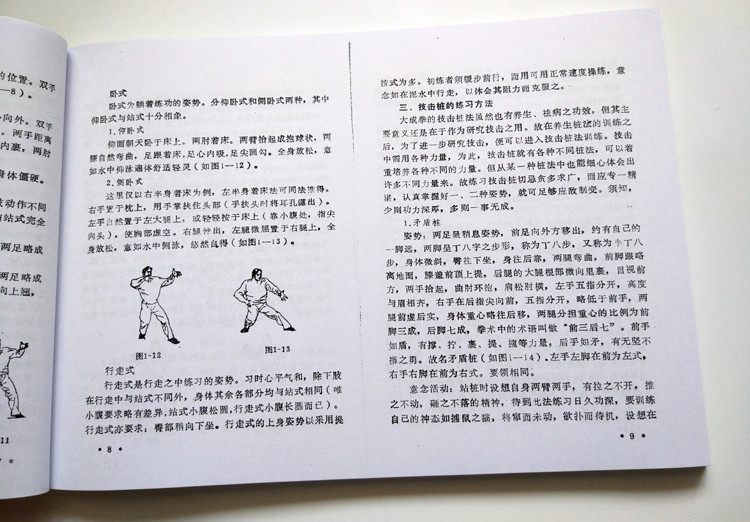 的位置。双手
—8）。
向外。双手
。两手距离
内裹，两肘
身体僵硬。
被动作不同
与站式完全
两足略成
两足略成
向上翘，
11
卧式
卧式为躺着练功的姿势。分仰卧式和侧卧式两种，其中
仰卧式与站式十分相象。
1.仰卧式
仰面朝天卧于床上。两肘着床。两臂抬起成抱球状，两
膝自然弯曲，足跟着床，足心内吸，足尖回勾。全身放松，意
如水中仰泳通体舒适轻灵（如图1—12）。
2.侧卧式
这里仅以右半身着床为例，左半身着床法可同法推得。
右手置于枕上，用手掌扶住头部（手扶头时将耳孔露出）。
左手自然置于左大腿上，或轻轻按于床上（靠小腹处，指尖
向头），使胸部虚空。右腿伸出，左腿微屈置于右腿上，全
身放松，意如水中侧泳，悠然自得（如图1—13）。
图1-12
图1-13
行走式
行走式是行走之中练习的姿势。习时心平气和，除下肢
在行走中与站式不同外，身体其余各部分均与站式相同（唯
小腹要求略有差异，站式小腹松圆，行走式小腹长圆而已）。
行走式亦要求：臀部稍向下坐。行走式的上身姿势以采用提
• 8 •
技式为多。初练者须缓步前行，而用可用正常速度操练，意
念如在泥水中行走，以体会其阻力而克服之。
三、技击桩的练习方法
大成拳的技击桩法虽然也有养生、祛病之功效，但其主
要意义还是在于作为研究技击之用。故在养生桩法的训练之
后，为了进一步研究技击，便可以进入技击桩法训练。技击
中需用各种力量，为此，技击桩就有各种不同桩法，可以着
重培养各种不同的力量。但从某一种桩法中也能细心体会出
许多不同力量来。故练习技击桩切忌贪多求广，而应专一精
湛，认真掌握好一、二种姿势，就可足够应敌制变。须知，
少则功力深厚，多则一事无成。
1.矛盾桩
姿势：两足呈稍息姿势，前足向外方移出，约有自己的
一脚远，两脚呈丁八字之步形，称为丁八步，又称为半丁八
步，身体微斜，臀往下坐，身往后靠，两腿弯曲，前脚跟略
离地面，膝盖前顶上提，后腿的大腿根部微向里裹，目视前
方，两手抬起，曲肘环抱，肩松肘横，左手五指分开，高度
与眉相齐，右手在后指尖向前，五指分开，略低于前手，两
腿前虚后实，身体重心略往后移，两腿分担重心的比例为前
脚三成，后脚七成，拳术中的术语叫做“前三后七”。前手
如盾，有撑、拧、裹、提、撞等力量，后手如矛，有无坚不
摧之勇。故名矛盾桩（如图1—14）。左手左脚在前为左式，
右手右脚在前为右式。要领相同。
意念活动：站桩时设想自身两臂两手，有拉之不开，推
之不动，砸之不落的精神，待到此法练习日久功深，要训练
自己的神态如捕鼠之猫，将窜而未动，欲扑而待机，设想在
• 9 •